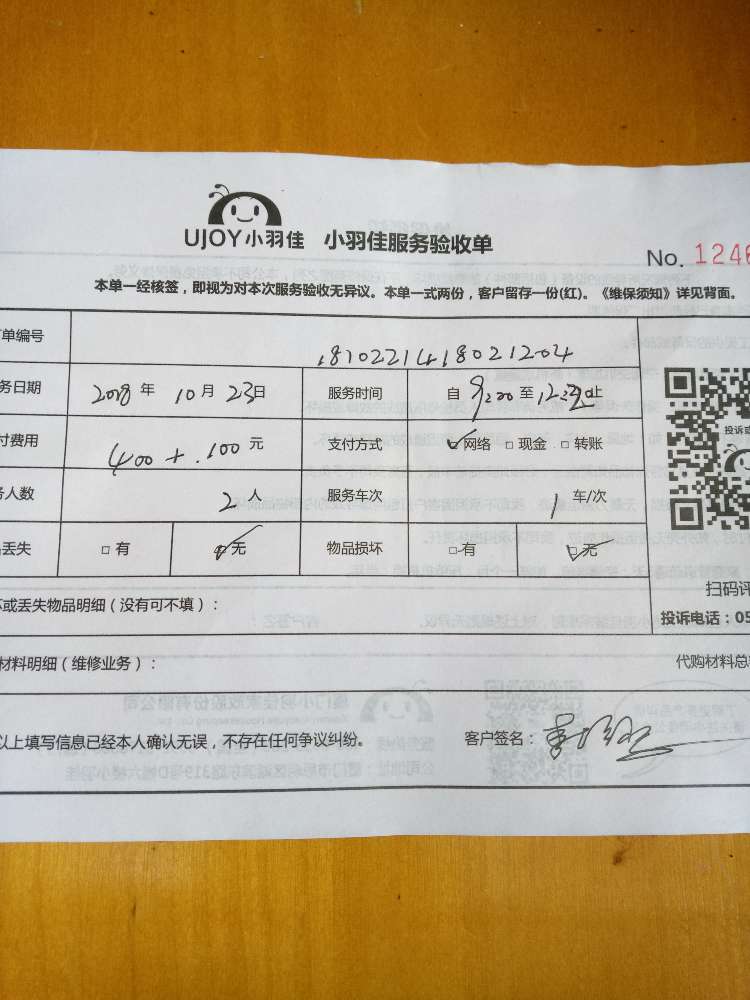 UJOY小羽佳 小羽佳服务验收单
No. 1246
本单一经核签，即视为对本次服务验收无异议。本单一式两份，客户留存一份(红)。《维保须知》详见背面。
单编号 181022141180021204
务日期 2018 年 10 月 23 日 服务时间 自 9:00 至 12:30 止
付费用 400 + 100 元 支付方式 ☑网络 □现金 □转账
务人数 2 人 服务车次 1 车/次
丢失 □有 ☑无 物品损坏 □有 ☑无
投诉或
扫码评
坏或丢失物品明细（没有可不填）：
投诉电话：05
材料明细（维修业务）：
代购材料总
以上填写信息已经本人确认无误，不存在任何争议纠纷。
客户签名：